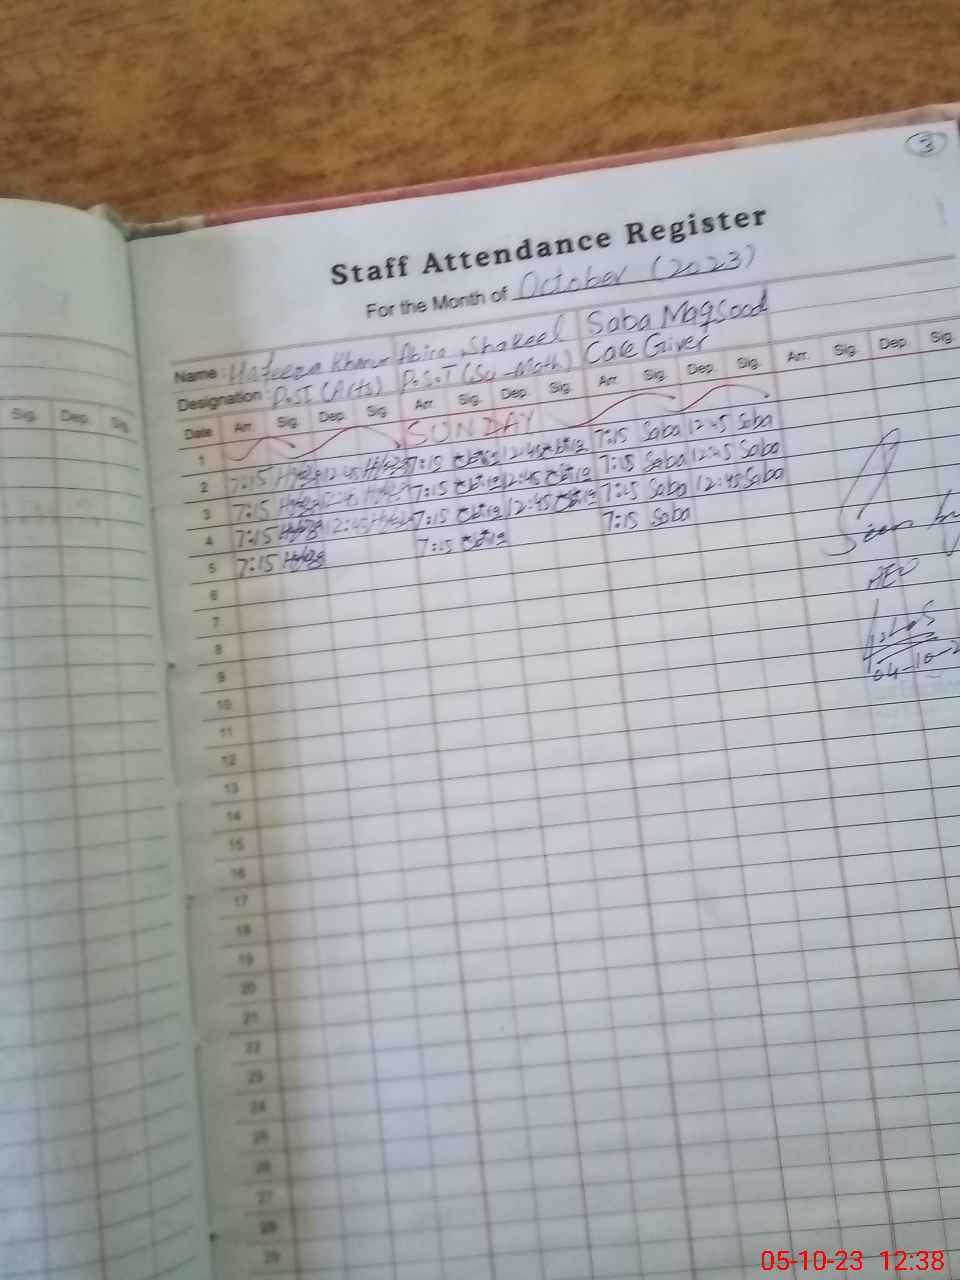 3
Staff Attendance Register
For the Month of October (2023)
Name : Hafeeza Abira Shakeel Saba Maqsood
Designation : P.S.T (Arts) P.S.T (Sci-Math) Care Giver
Sig. Dep. Sig. Date Arr. Sig. Dep. Sig. Arr. Sig. Dep. Sig. Arr. Sig. Dep. Sig. Arr. Sig. Dep. Sig.
1 SUNDAY
2 7:15 12:45 7:15 12:45 7:15 Saba 12:45 Saba
3 7:15 7:15 12:45 7:15 Saba 12:45 Saba
4 7:15 12:45 7:15 12:45 7:15 Saba 12:45 Saba
5 7:15 7:15 7:15 Saba
Seen
AEO
04-10-2
6
7
8
9
10
11
12
13
14
15
16
17
18
19
20
21
22
23
24
25
26
27
28
29
05-10-23 12:38